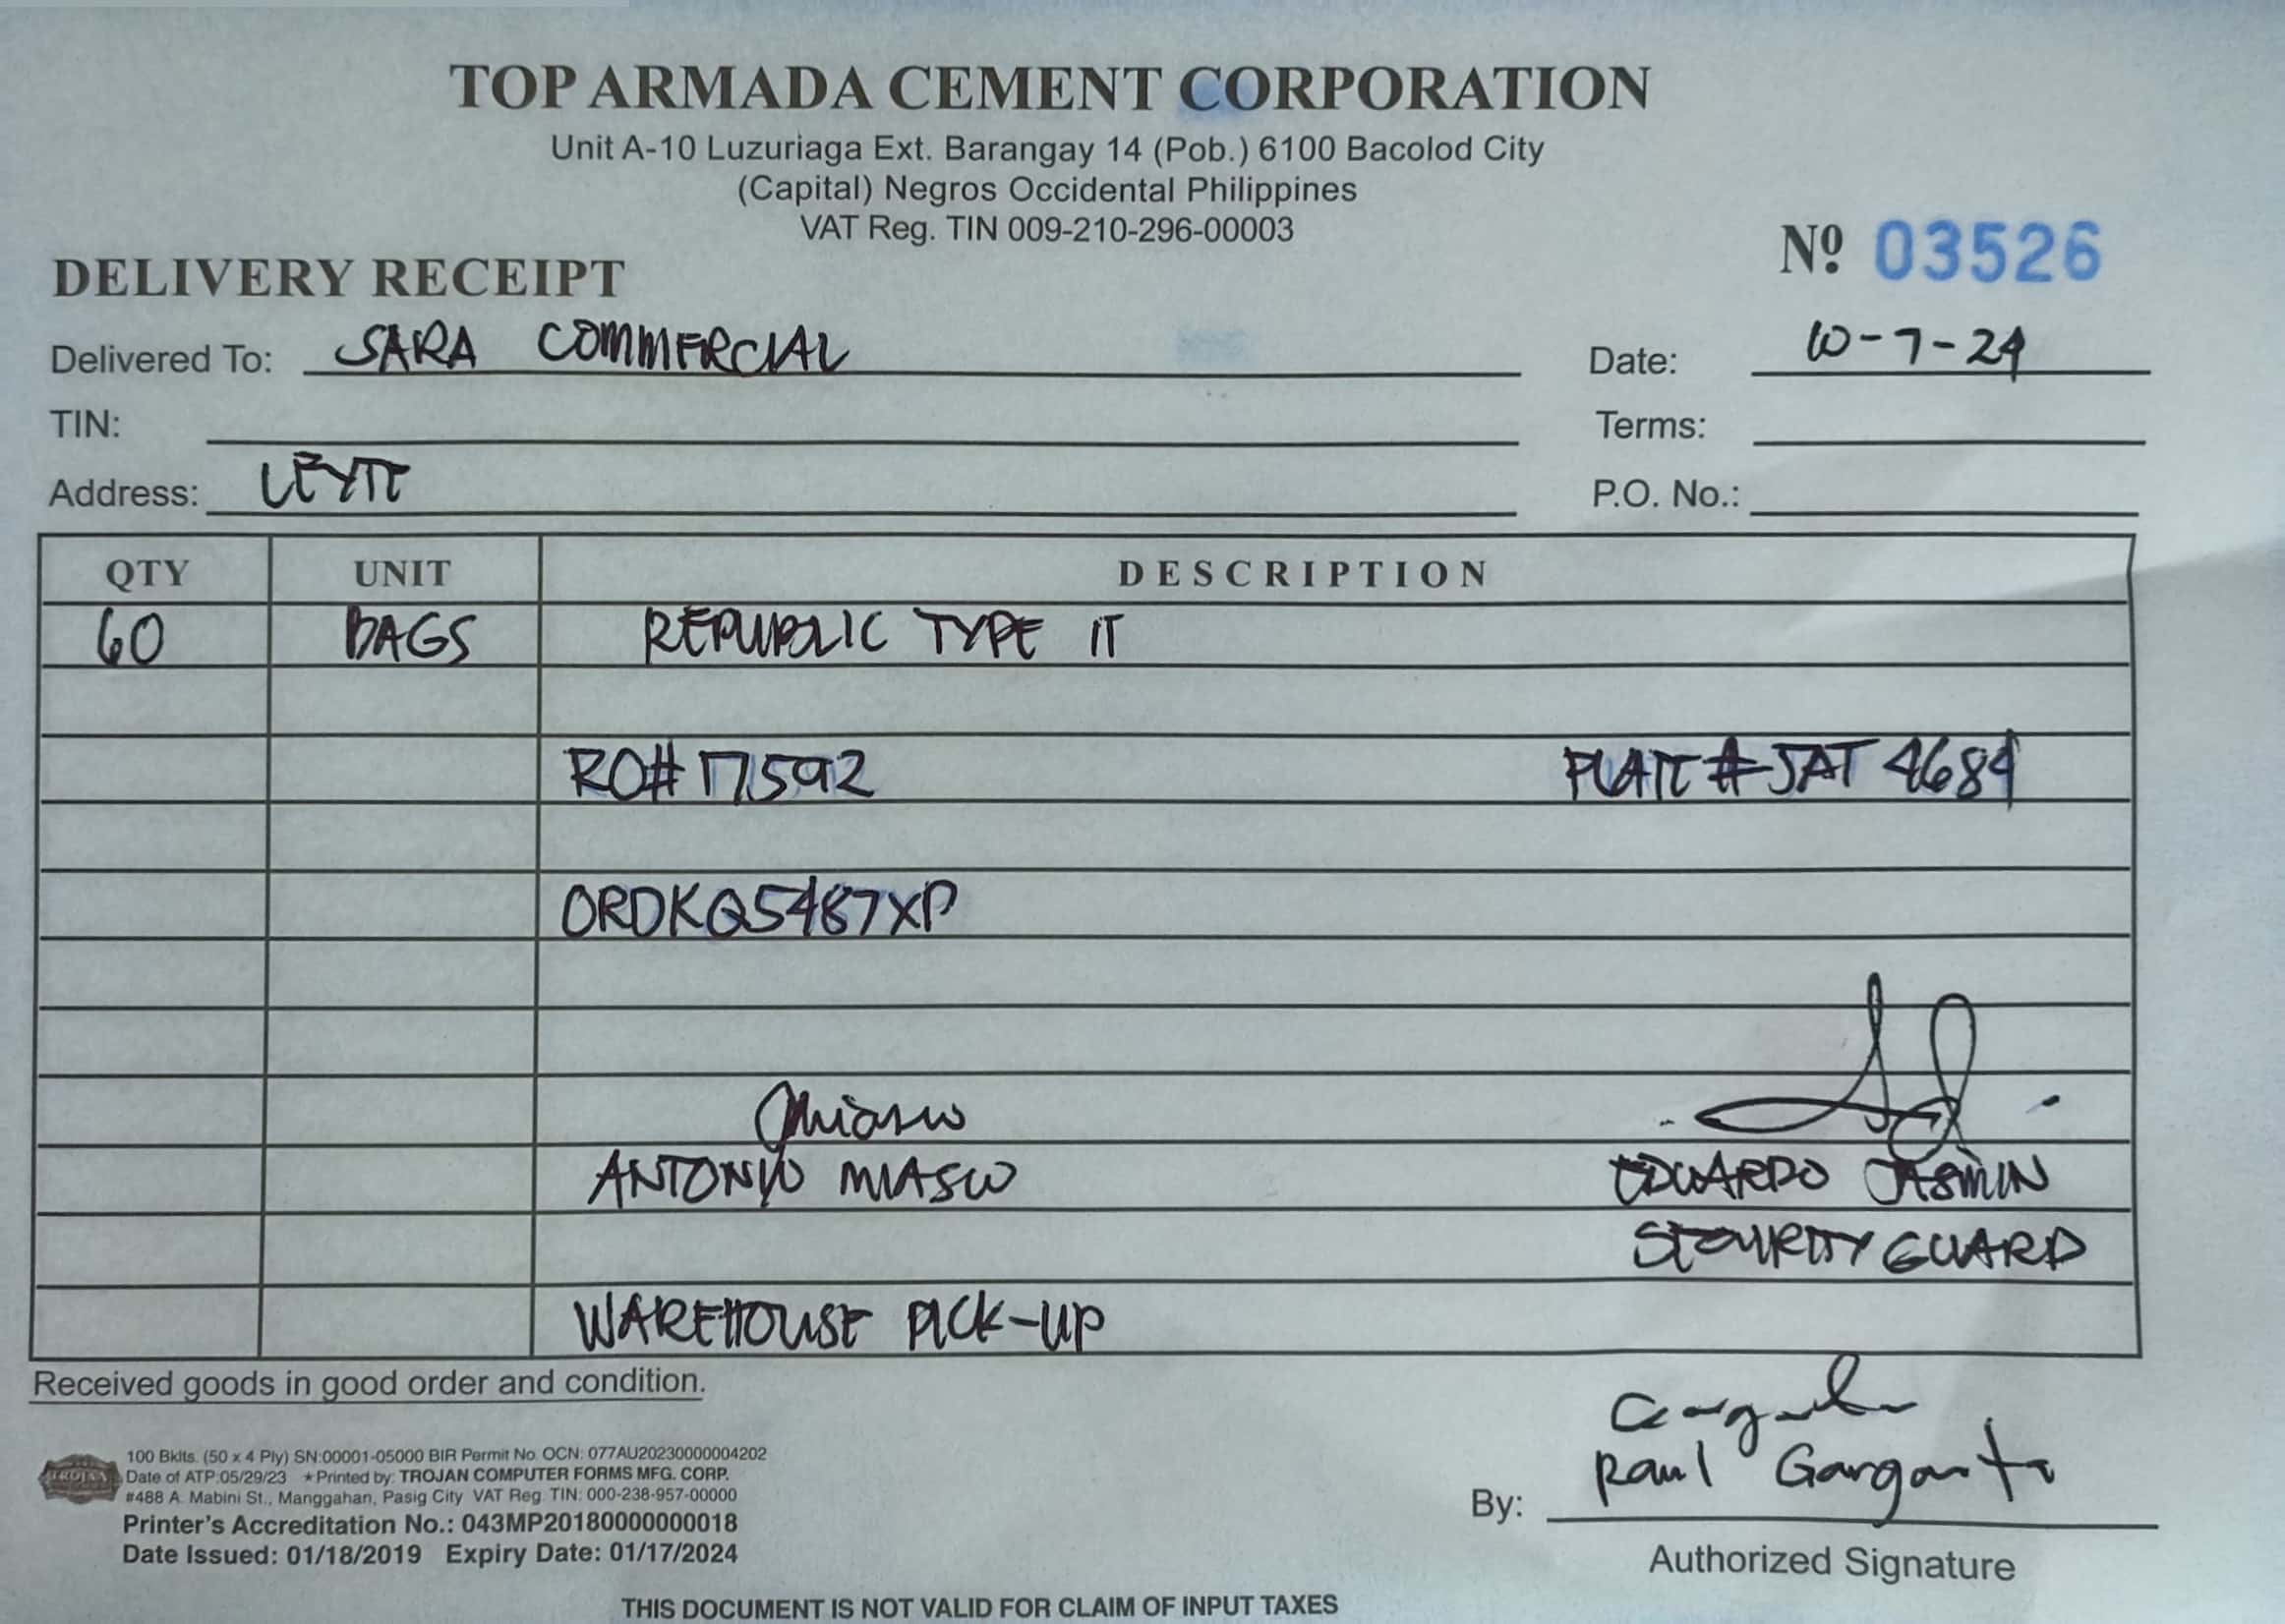 TOP ARMADA CEMENT CORPORATION
Unit A-10 Luzuriaga Ext. Barangay 14 (Pob.) 6100 Bacolod City
(Capital) Negros Occidental Philippines
VAT Reg. TIN 009-210-296-00003
Nº 03526
DELIVERY RECEIPT
Delivered To: SARA COMMERCIAL Date: 10-7-24
TIN: Terms:
Address: LEYTE P.O. No.:
QTY UNIT DESCRIPTION
60 BAGS REPUBLIC TYPE IT
RO# 17592 PLATE # JAT 4684
ORDKQ5487XP
ANTONIO MIASCO EDUARDO JASMIN
SECURITY GUARD
WAREHOUSE PICK-UP
Received goods in good order and condition.
100 Bklts. (50 x 4 Ply) SN:00001-05000 BIR Permit No. OCN: 077AU20230000004202
Date of ATP:05/29/23 ★Printed by: TROJAN COMPUTER FORMS MFG. CORP.
#488 A. Mabini St., Manggahan, Pasig City VAT Reg. TIN: 000-238-957-00000
Printer's Accreditation No.: 043MP20180000000018
Date Issued: 01/18/2019 Expiry Date: 01/17/2024
TROJAN
By: Raul Garganta
Authorized Signature
THIS DOCUMENT IS NOT VALID FOR CLAIM OF INPUT TAXES